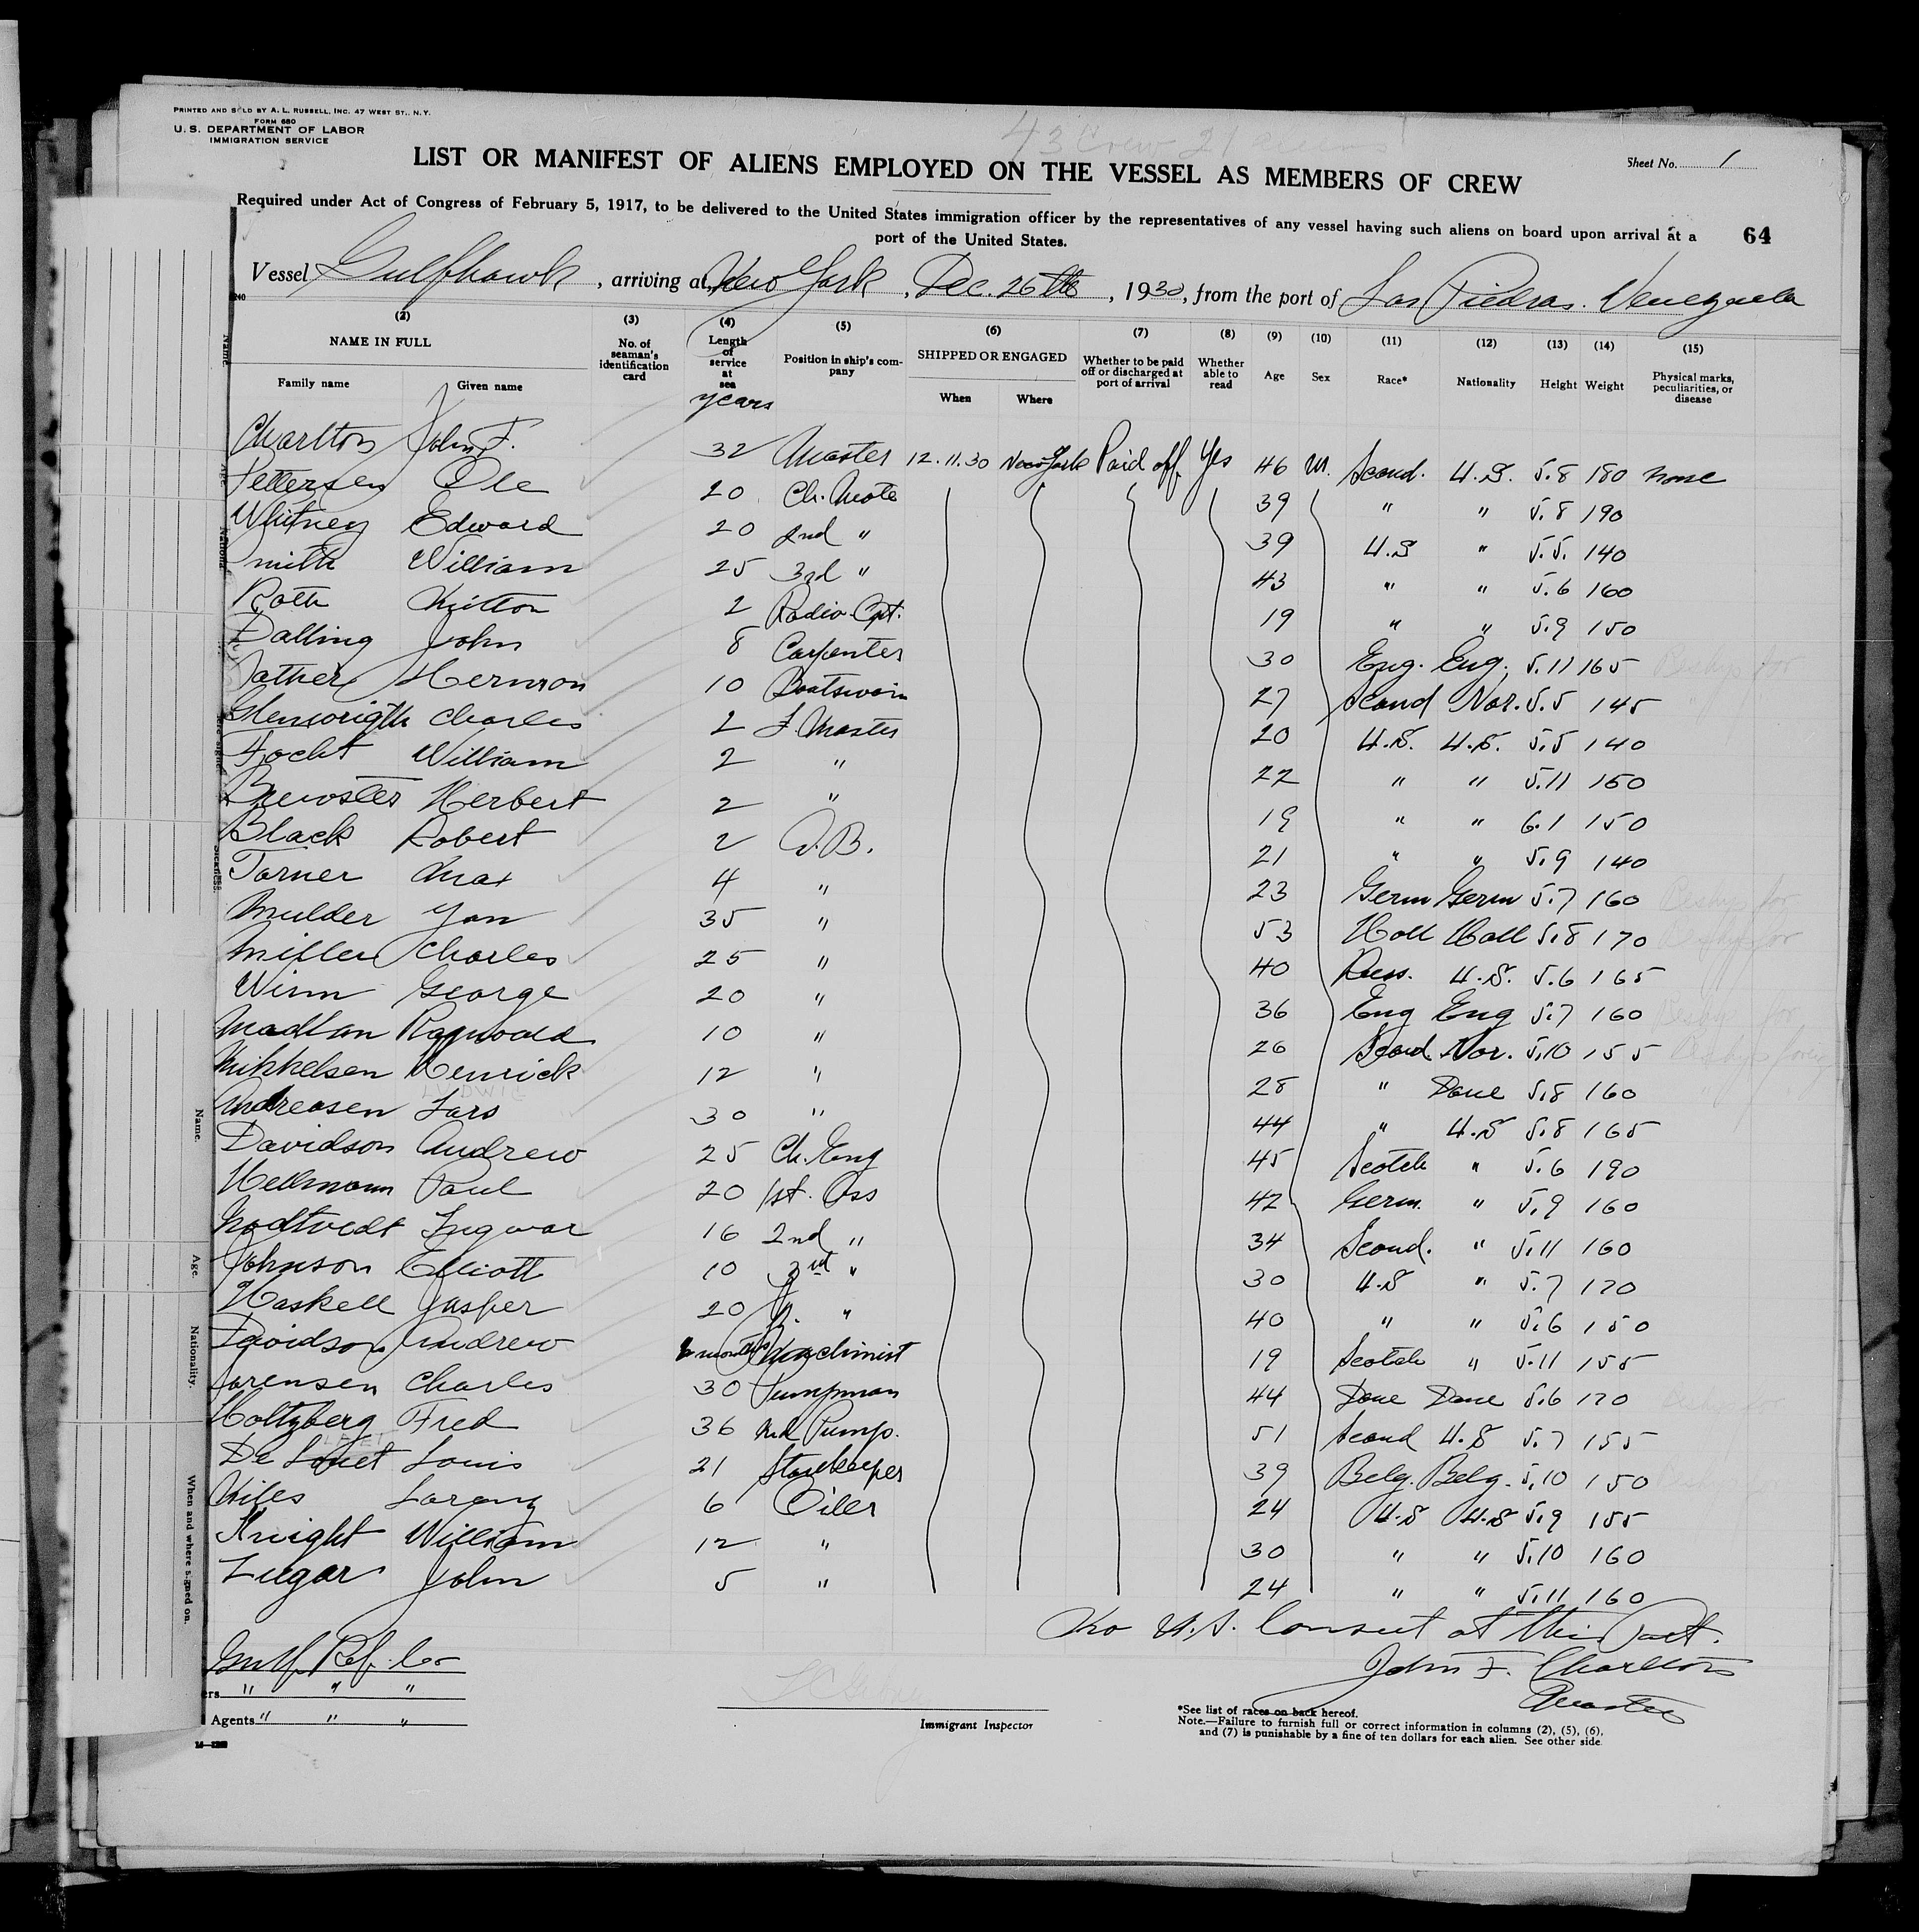 PRINTED AND SOLD BY A. L. RUSSELL, INC. 47 WEST ST., N. Y.
FORM 680
U. S. DEPARTMENT OF LABOR
IMMIGRATION SERVICE
43 Crew 21
LIST OR MANIFEST OF ALIENS EMPLOYED ON THE VESSEL AS MEMBERS OF CREW
Sheet No. 1
Required under Act of Congress of February 5, 1917, to be delivered to the United States immigration officer by the representatives of any vessel having such aliens on board upon arrival at a
port of the United States.
64
Vessel Gulfhawk, arriving at New York, Dec. 26th, 1930, from the port of Las Piedras. Venezuela
(2) (3) (4) (5) (6) (7) (8) (9) (10) (11) (12) (13) (14) (15)
NAME IN FULL No. of seaman's identification card Length of service at sea Position in ship's company SHIPPED OR ENGAGED Whether to be paid off or discharged at port of arrival Whether able to read Age Sex Race* Nationality Height Weight Physical marks, peculiarities, or disease
Family name Given name years When Where
Charlton John F. 32 Master 12.11.30 New York Paid off Yes 46 M. Scand. U.S. 5.8 180 none
Pettersen Ole 20 Ch. Mate 39 " " 5.8 190
Whitney Edward 20 2nd " 39 U.S " 5.5. 140
Smith William 25 3rd " 43 " " 5.6 160
Roth Milton 2 Radio Opt. 19 " " 5.9 150
Dalling John 8 Carpenter 30 Eng. Eng. 5.11 165
Herman 10 Boatswain 27 Scand Nor. 5.5 145
Glenwrigth Charles 2 20 U.S. U.S. 5.5 140
Focht William 2 " 22 " " 5.11 160
Brewster Herbert 2 " 19 " " 6.1 150
Black Robert 2 A.B. 21 " " 5.9 140
Torner Max 4 " 23 Germ Germ 5.7 160
Mulder Jan 35 " 53 Holl Holl 5.8 170
Miller Charles 25 " 40 Russ. U.S. 5.6 165
Winn George 20 " 36 Eng Eng 5.7 160
Madlan Ragnvald 10 " 26 Scand. Nor. 5.10 155
Mikkelsen Henrick 12 " 28 " Dane 5.8 160
LUDWIG
Andreasen Lars 30 " 44 " U.S 5.8 165
Davidson Andrew 25 Ch. Eng 45 Scotch " 5.6 190
Hellmann Paul 20 1st. Ass 42 Germ. " 5.9 160
Nodtvedt Ingvar 16 2nd " 34 Scand. " 5.11 160
Johnson Elliott 10 3rd " 30 U.S " 5.7 170
Haskell Jasper 20 Jr. " 40 " " 5.6 150
Davidson Andrew 6 months Machinist 19 Scotch " 5.11 155
Sorensen Charles 30 Pumpman 44 Dane Dane 5.6 170
Holtzberg Fred 36 2nd Pump. 51 Scand U.S 5.7 155
De Louis 21 Storekeeper 39 Belg. Belg. 5.10 150
Miles 6 Oiler 24 U.S U.S 5.9 155
Knight William 12 " 30 " " 5.10 160
Lugar John 5 " 24 " " 5.11 160
No U.S. Consul at this Port.
Gulf Ref. Co
John F. Charlton
Master
ers " " "
Agents " " "
Immigrant Inspector
*See list of races on back hereof.
Note.—Failure to furnish full or correct information in columns (2), (5), (6),
and (7) is punishable by a fine of ten dollars for each alien. See other side
Name.
Age.
Nationality.
When and where signed on.